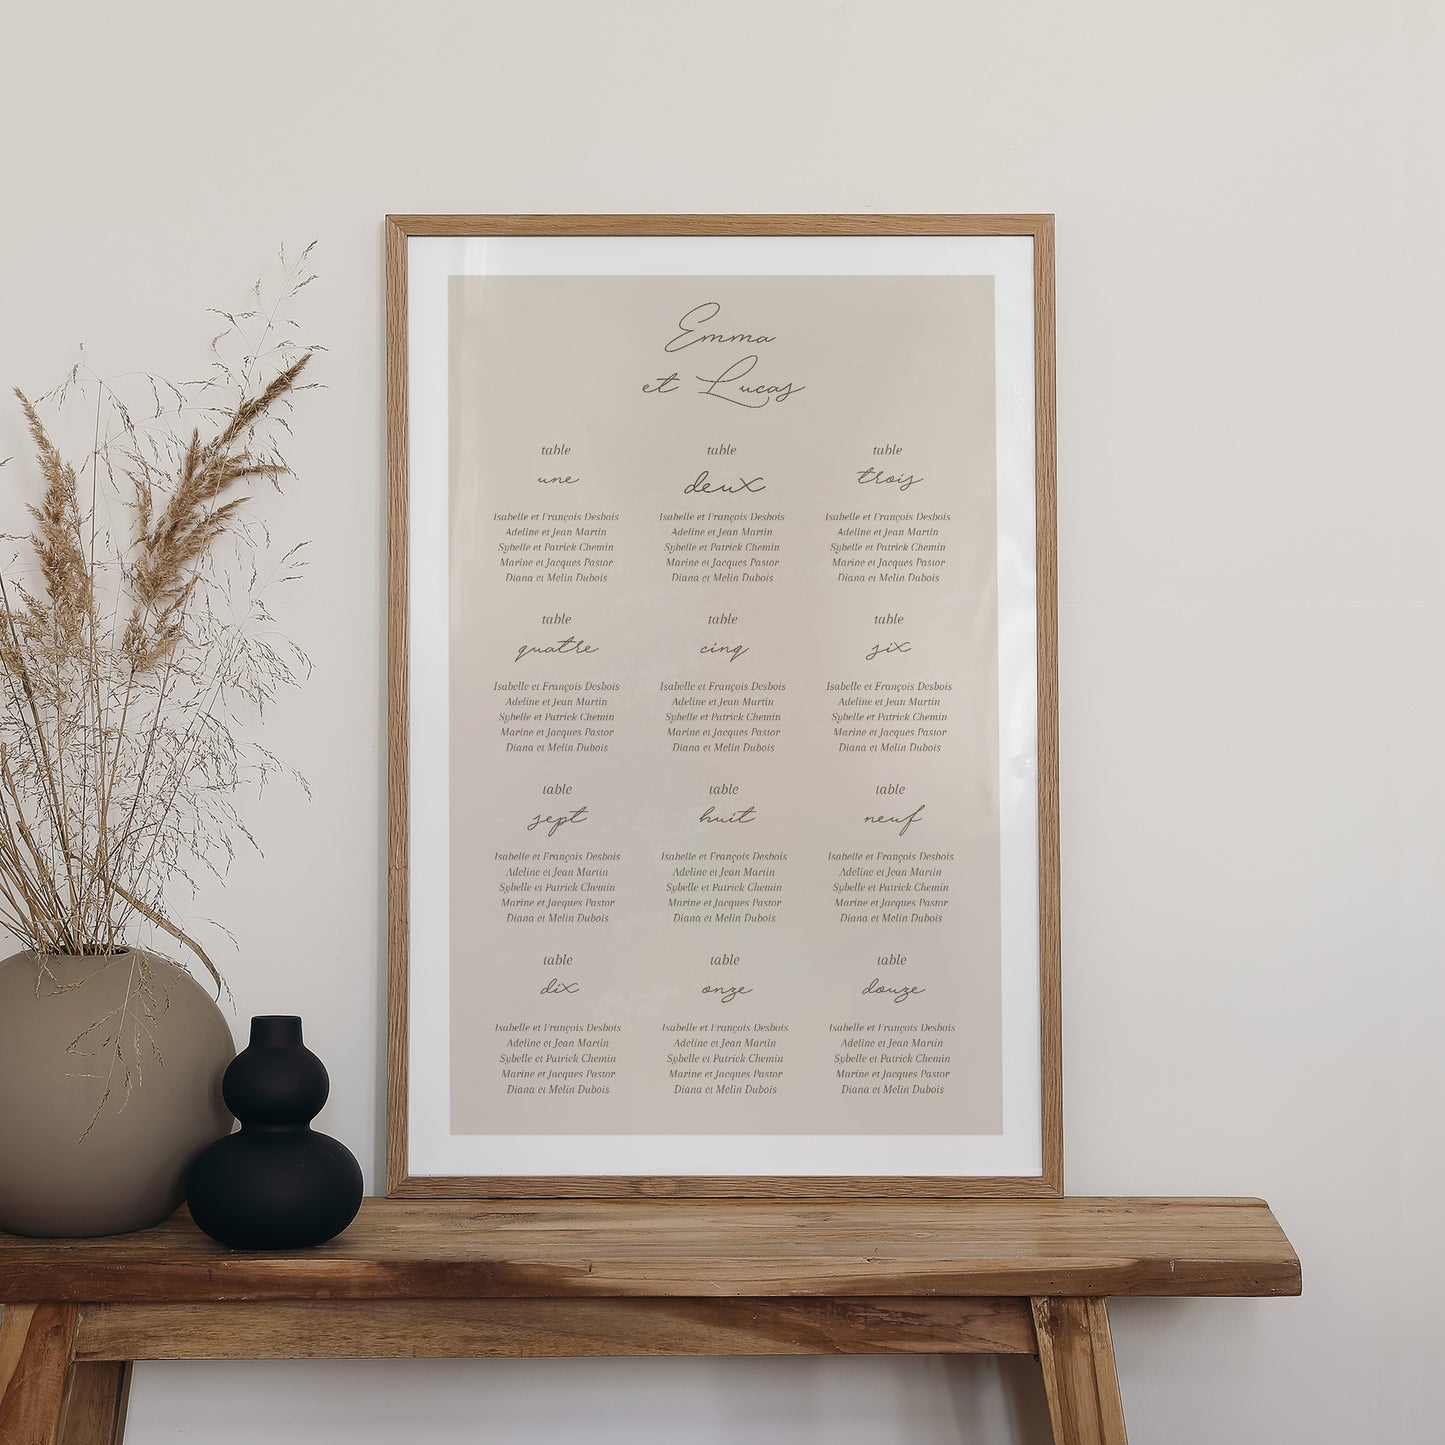 Emma
et Lucas
table
une
Isabelle et François Desbois
Adeline et Jean Martin
Sybelle et Patrick Chemin
Marine et Jacques Pastor
Diana et Melin Dubois
table
deux
Isabelle et François Desbois
Adeline et Jean Martin
Sybelle et Patrick Chemin
Marine et Jacques Pastor
Diana et Melin Dubois
table
trois
Isabelle et François Desbois
Adeline et Jean Martin
Sybelle et Patrick Chemin
Marine et Jacques Pastor
Diana et Melin Dubois
table
quatre
Isabelle et François Desbois
Adeline et Jean Martin
Sybelle et Patrick Chemin
Marine et Jacques Pastor
Diana et Melin Dubois
table
cinq
Isabelle et François Desbois
Adeline et Jean Martin
Sybelle et Patrick Chemin
Marine et Jacques Pastor
Diana et Melin Dubois
table
six
Isabelle et François Desbois
Adeline et Jean Martin
Sybelle et Patrick Chemin
Marine et Jacques Pastor
Diana et Melin Dubois
table
sept
Isabelle et François Desbois
Adeline et Jean Martin
Sybelle et Patrick Chemin
Marine et Jacques Pastor
Diana et Melin Dubois
table
huit
Isabelle et François Desbois
Adeline et Jean Martin
Sybelle et Patrick Chemin
Marine et Jacques Pastor
Diana et Melin Dubois
table
neuf
Isabelle et François Desbois
Adeline et Jean Martin
Sybelle et Patrick Chemin
Marine et Jacques Pastor
Diana et Melin Dubois
table
dix
Isabelle et François Desbois
Adeline et Jean Martin
Sybelle et Patrick Chemin
Marine et Jacques Pastor
Diana et Melin Dubois
table
onze
Isabelle et François Desbois
Adeline et Jean Martin
Sybelle et Patrick Chemin
Marine et Jacques Pastor
Diana et Melin Dubois
table
douze
Isabelle et François Desbois
Adeline et Jean Martin
Sybelle et Patrick Chemin
Marine et Jacques Pastor
Diana et Melin Dubois